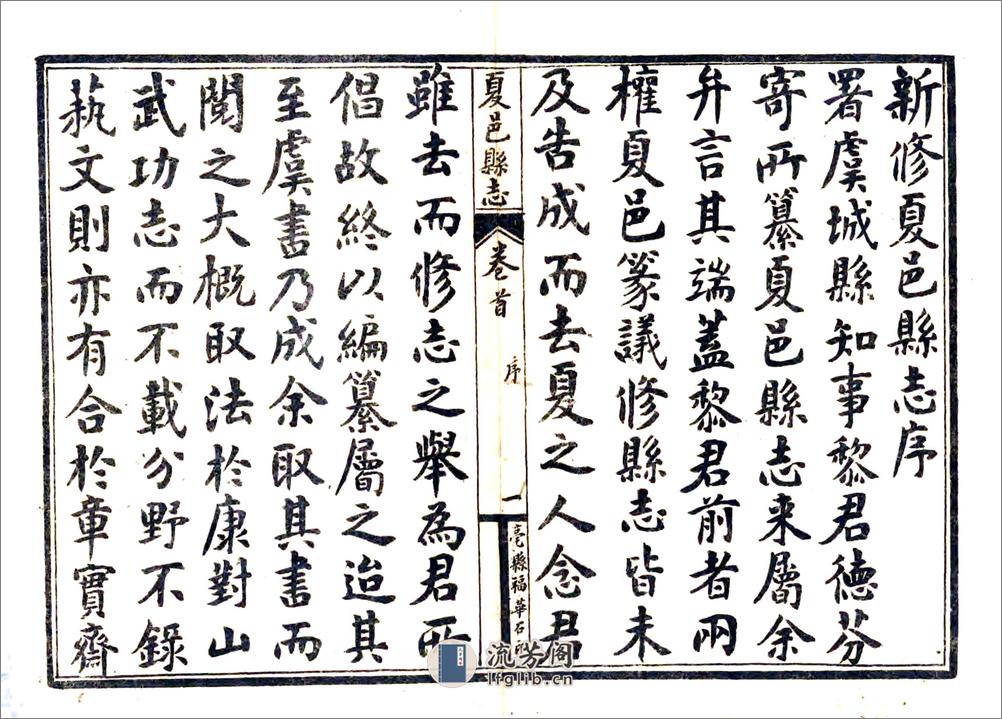 新修夏邑縣志序
署虞城縣知事黎君德芬
寄所纂夏邑縣志来屬余
弁言其端蓋黎君前者兩
權夏邑篆議修縣志皆未
及告成而去夏之人念君
夏邑縣志 卷首 序 一 亳縣福華石印
雖去而修志之舉為君所
倡故終以編纂屬之迨其
至虞書乃成余取其書而
閱之大概取法於康對山
武功志而不載分野不錄
蓺文則亦有合於章實齋
流芳阁
lfglib.cn